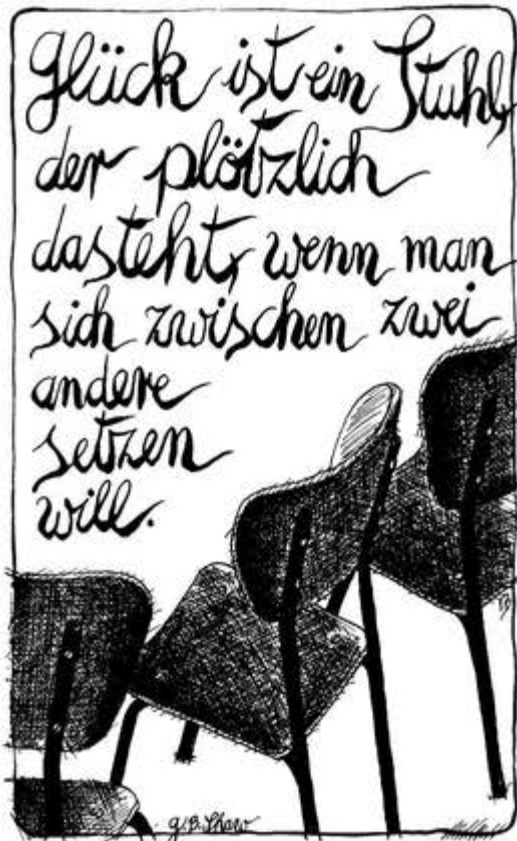 Glück ist ein Stuhl,
der plötzlich
dasteht, wenn man
sich zwischen zwei
andere
setzen
will.
G.B. Shaw